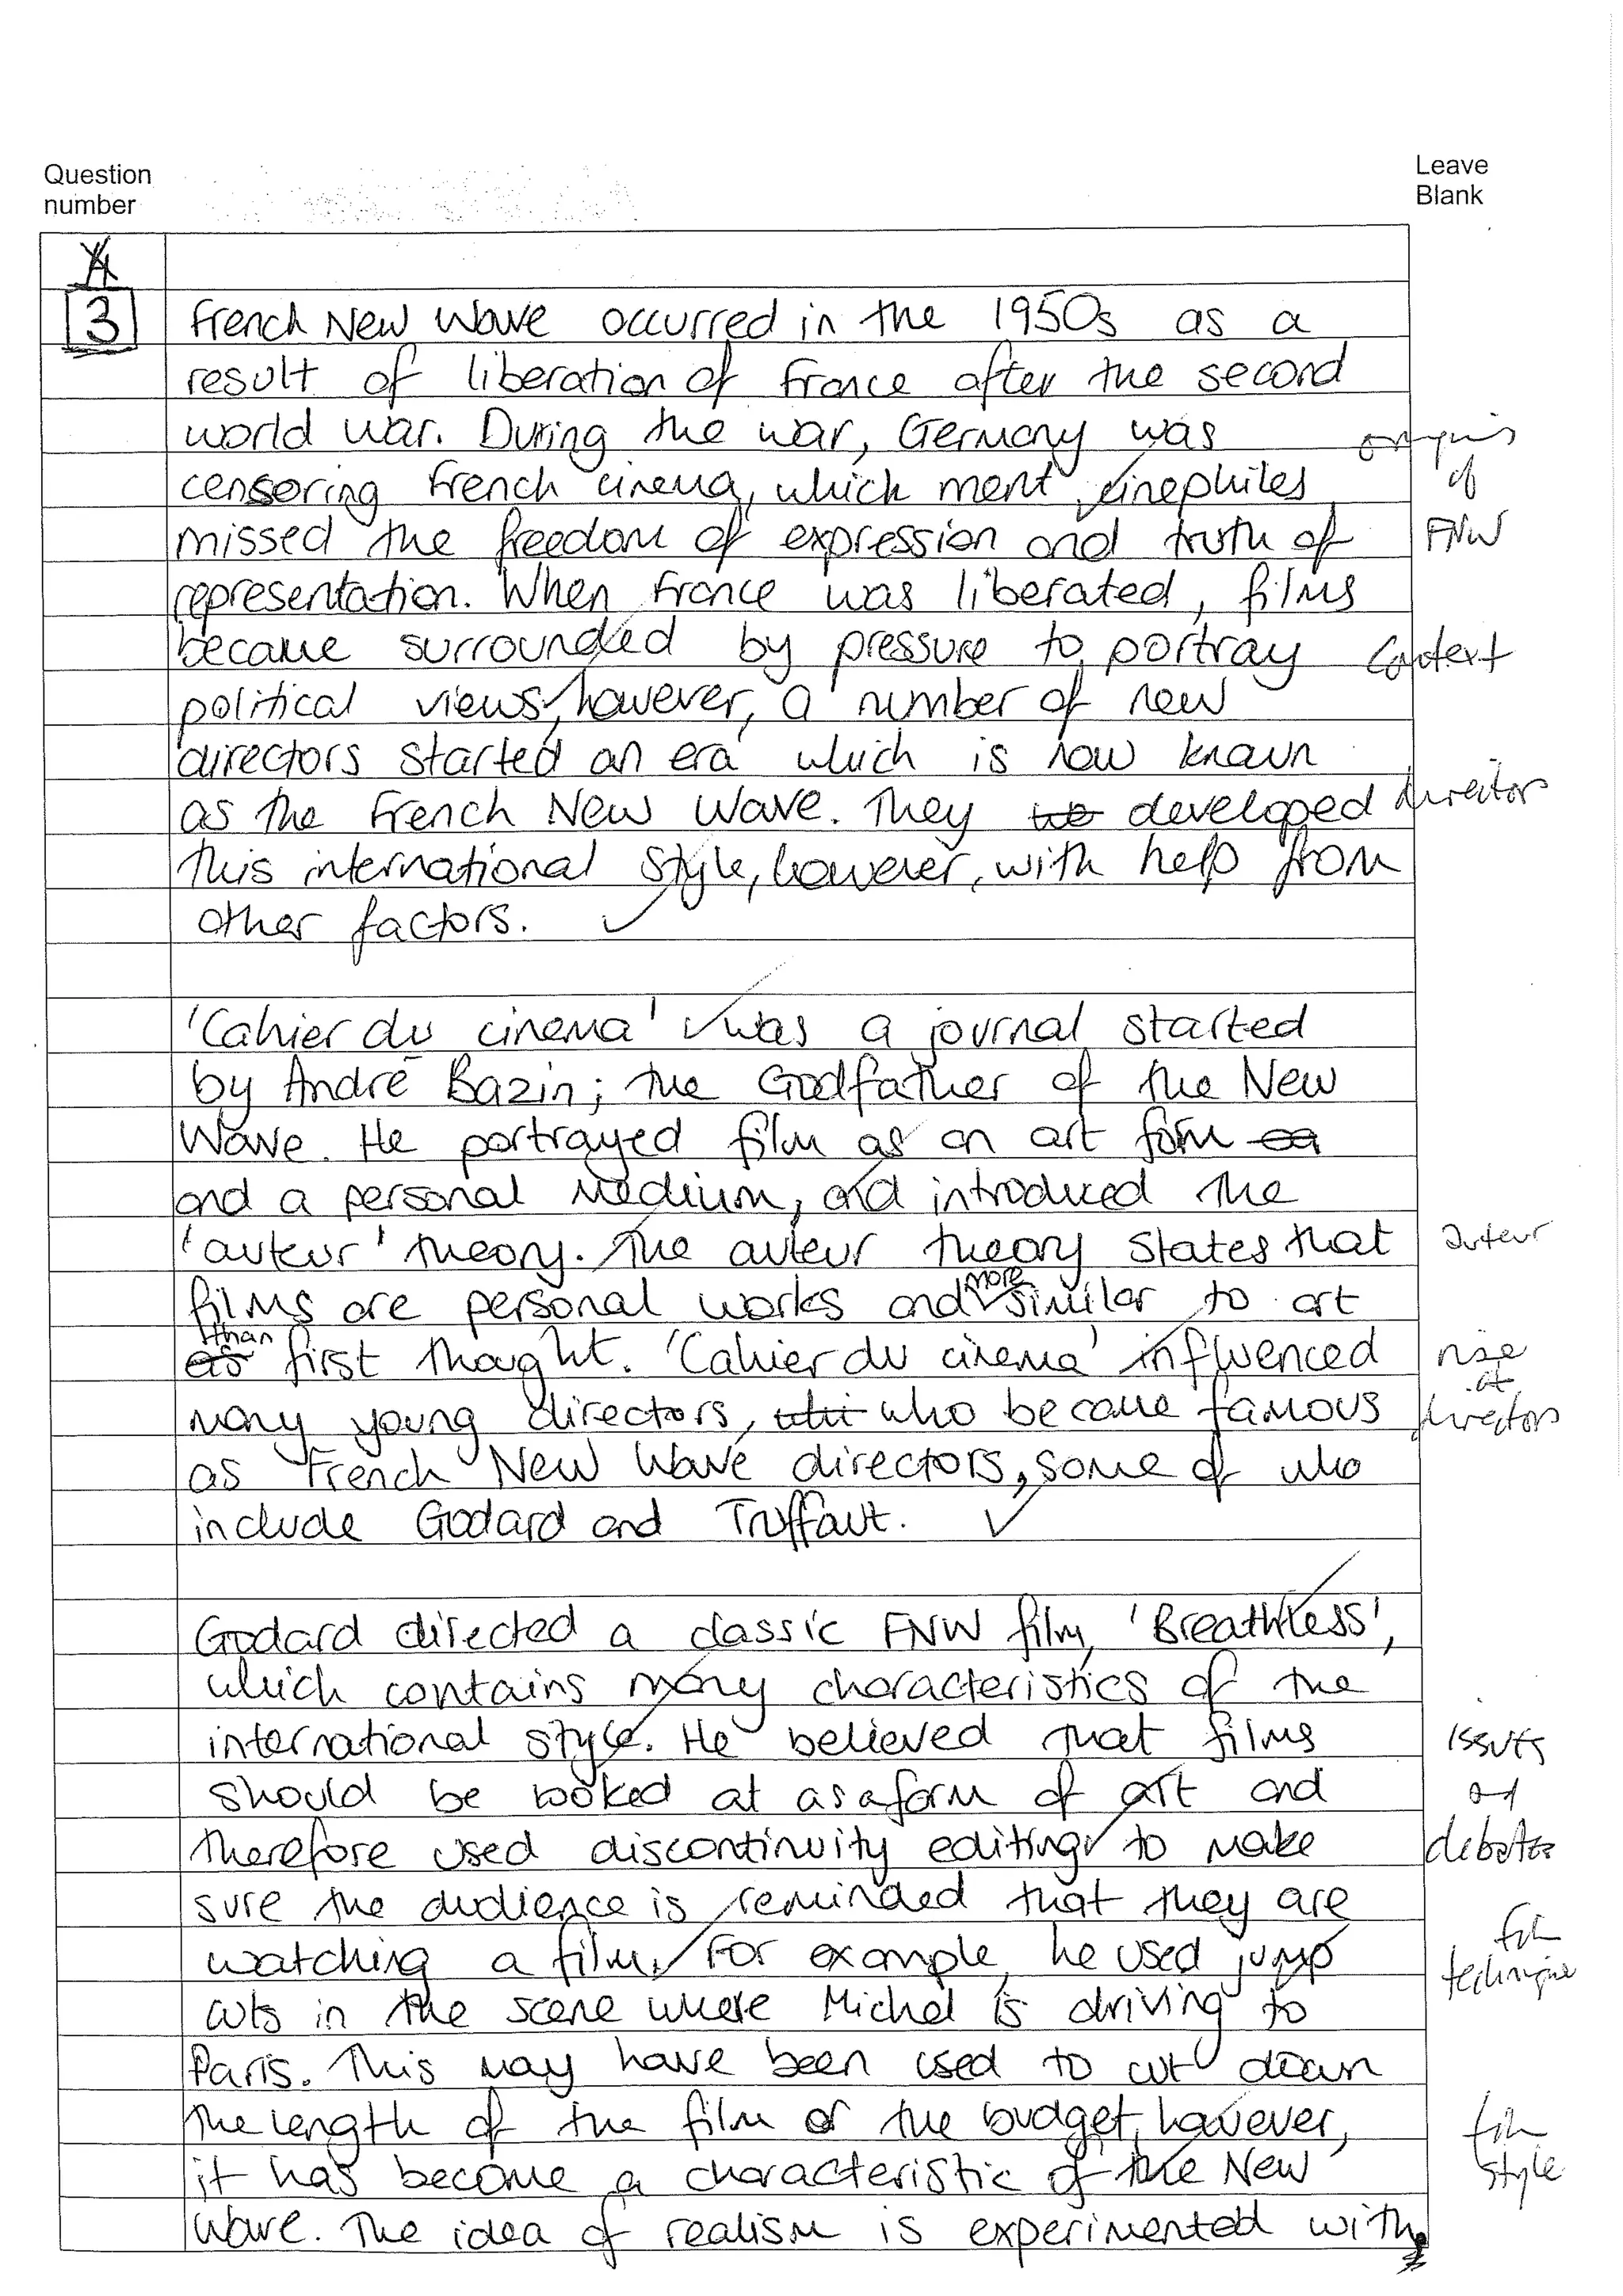 Question
number
Leave
Blank
3
French New Wave occurred in the 1950s as a
result of liberation of France after the second
world war. During the war, Germany was
censoring French cinema, which ment cinephiles
missed the freedom of expression and truth of
representation. When France was liberated, films
became surrounded by pressure to portray
political views, however, a number of new
directors started an era which is now known
as the French New Wave. They developed
this international style, however, with help from
other factors.
origins
of
FNW
Context
directors
'Cahier du cinema' was a journal started
by André Bazin; the Godfather of the New
Wave. He portrayed film as an art form
and a personal medium, and introduced the
'auteur' theory. The auteur theory states that
films are personal works and more similar to art
than first thought. 'Cahier du cinema' influenced
many young directors, who became famous
as French New Wave directors, some of who
include Godard and Truffaut.
auteur
rise
of
directors
Godard directed a classic FNW film, 'Breathless',
which contains many characteristics of the
international style. He believed that films
should be looked at as a form of art and
therefore used discontinuity editing to make
sure the audience is reminded that they are
watching a film. For example, he used jump
cuts in the scene where Michel is driving to
Paris. This may have been used to cut down
the length of the film or the budget, however,
it has become a characteristic of the New
Wave. The idea of realism is experimented with
issues
and
debates
film
technique
film
style